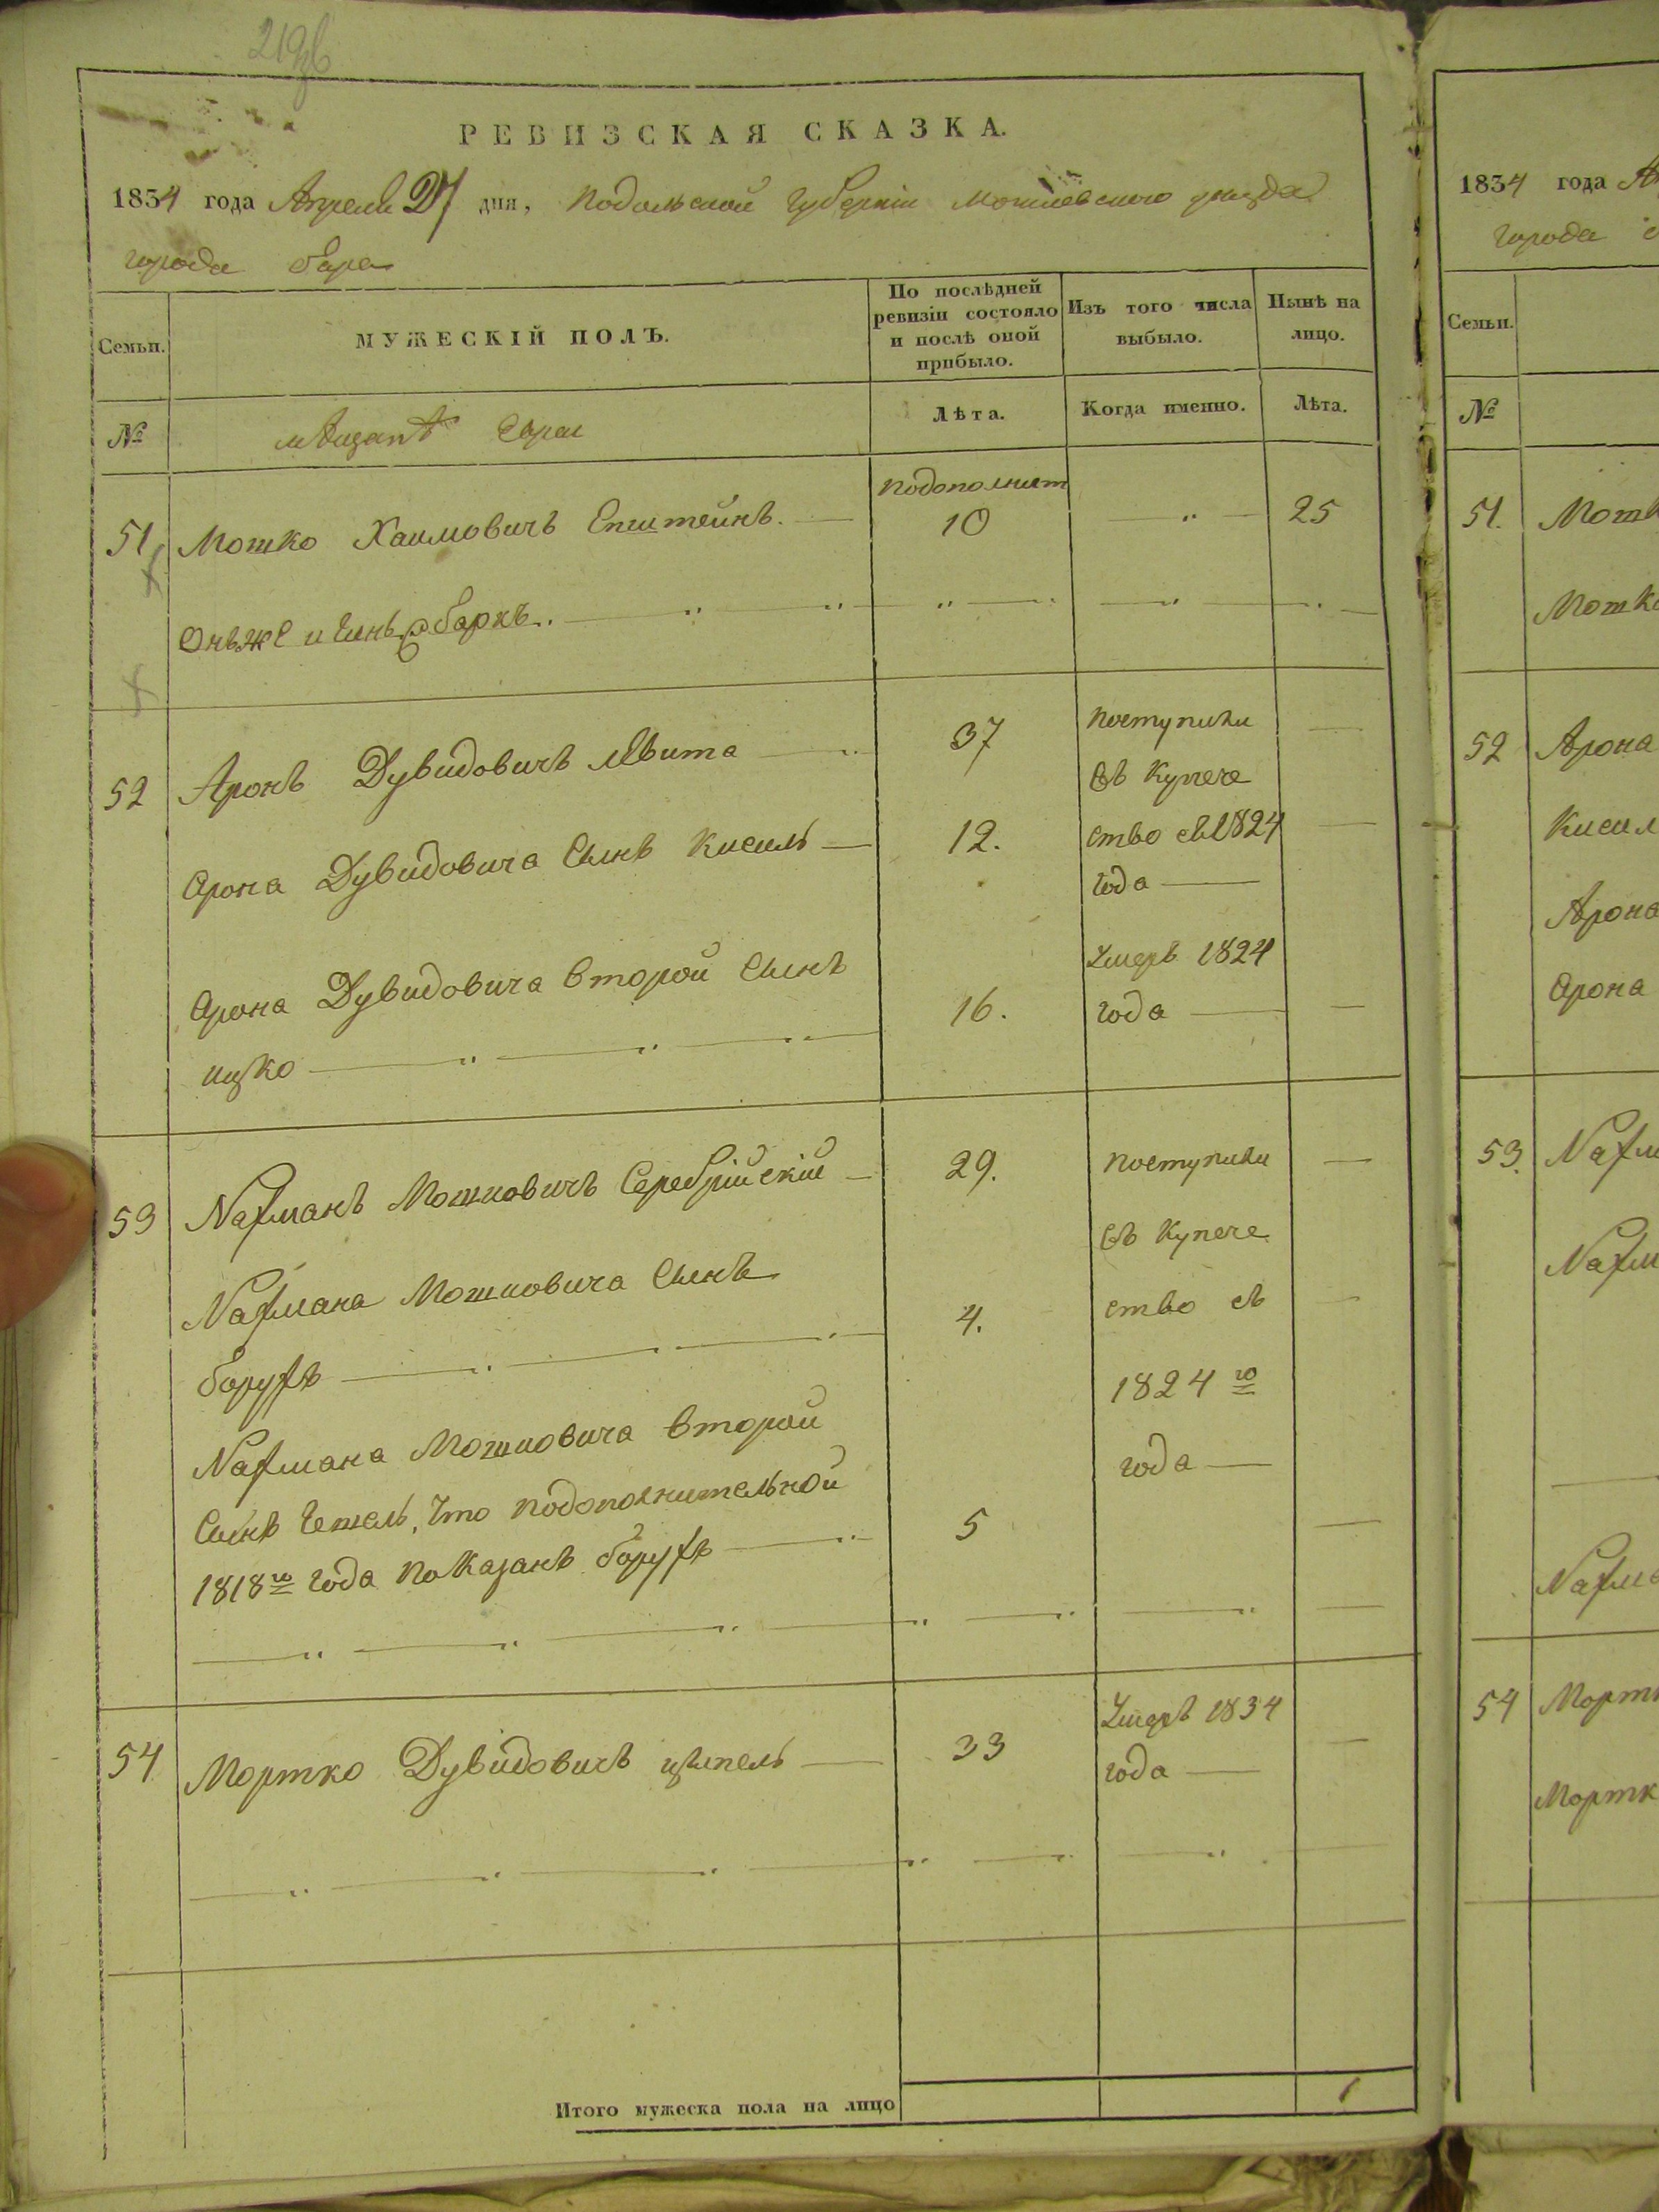 219об
РЕВИЗСКАЯ СКАЗКА.
1834 года Апреля 27 дня, Подольской Губерніи Могилевского уезда
города Бара
Семьи.
МУЖЕСКІЙ ПОЛЪ.
По послѣдней
ревизіи состояло
и послѣ оной
прибыло.
Изъ того числа
выбыло.
Нынѣ на
лицо.
№
мѣщанѣ Евреи
Лѣта.
Когда именно.
Лѣта.
подополнит
51 Мошко Хаимовичъ Епштейнъ. 10 " 25
Онъже и
52 Аронъ Дувидовичъ Левита 37 поступили
въ Купече
Арона Дувидовича Сынъ Кисиль 12. ство съ 1824
года
Арона Дувидовича второй Сынъ Умеръ 1824
ицко 16. года
53 Нахманъ Мошковичъ Серебрійскій 29. поступили
въ Купече
Нахмана Мошковича Сынъ ство съ
Борухъ 4.
1824 го
Нахмана Мошковича второй года
Сынъ Гетель, что подополнительной
1818го года показанъ Борухъ 5
54 Мортко Дувидовичъ 33 Умеръ 1834
года
Итого мужеска пола на лицо 1
1834 года Ап
города
Семьи.
№
51. Мошк
Мошко
52 Арона
Кисил
Арона
Арона
53. Нахм
Нахм
Нахм
54 Морт
Мортк